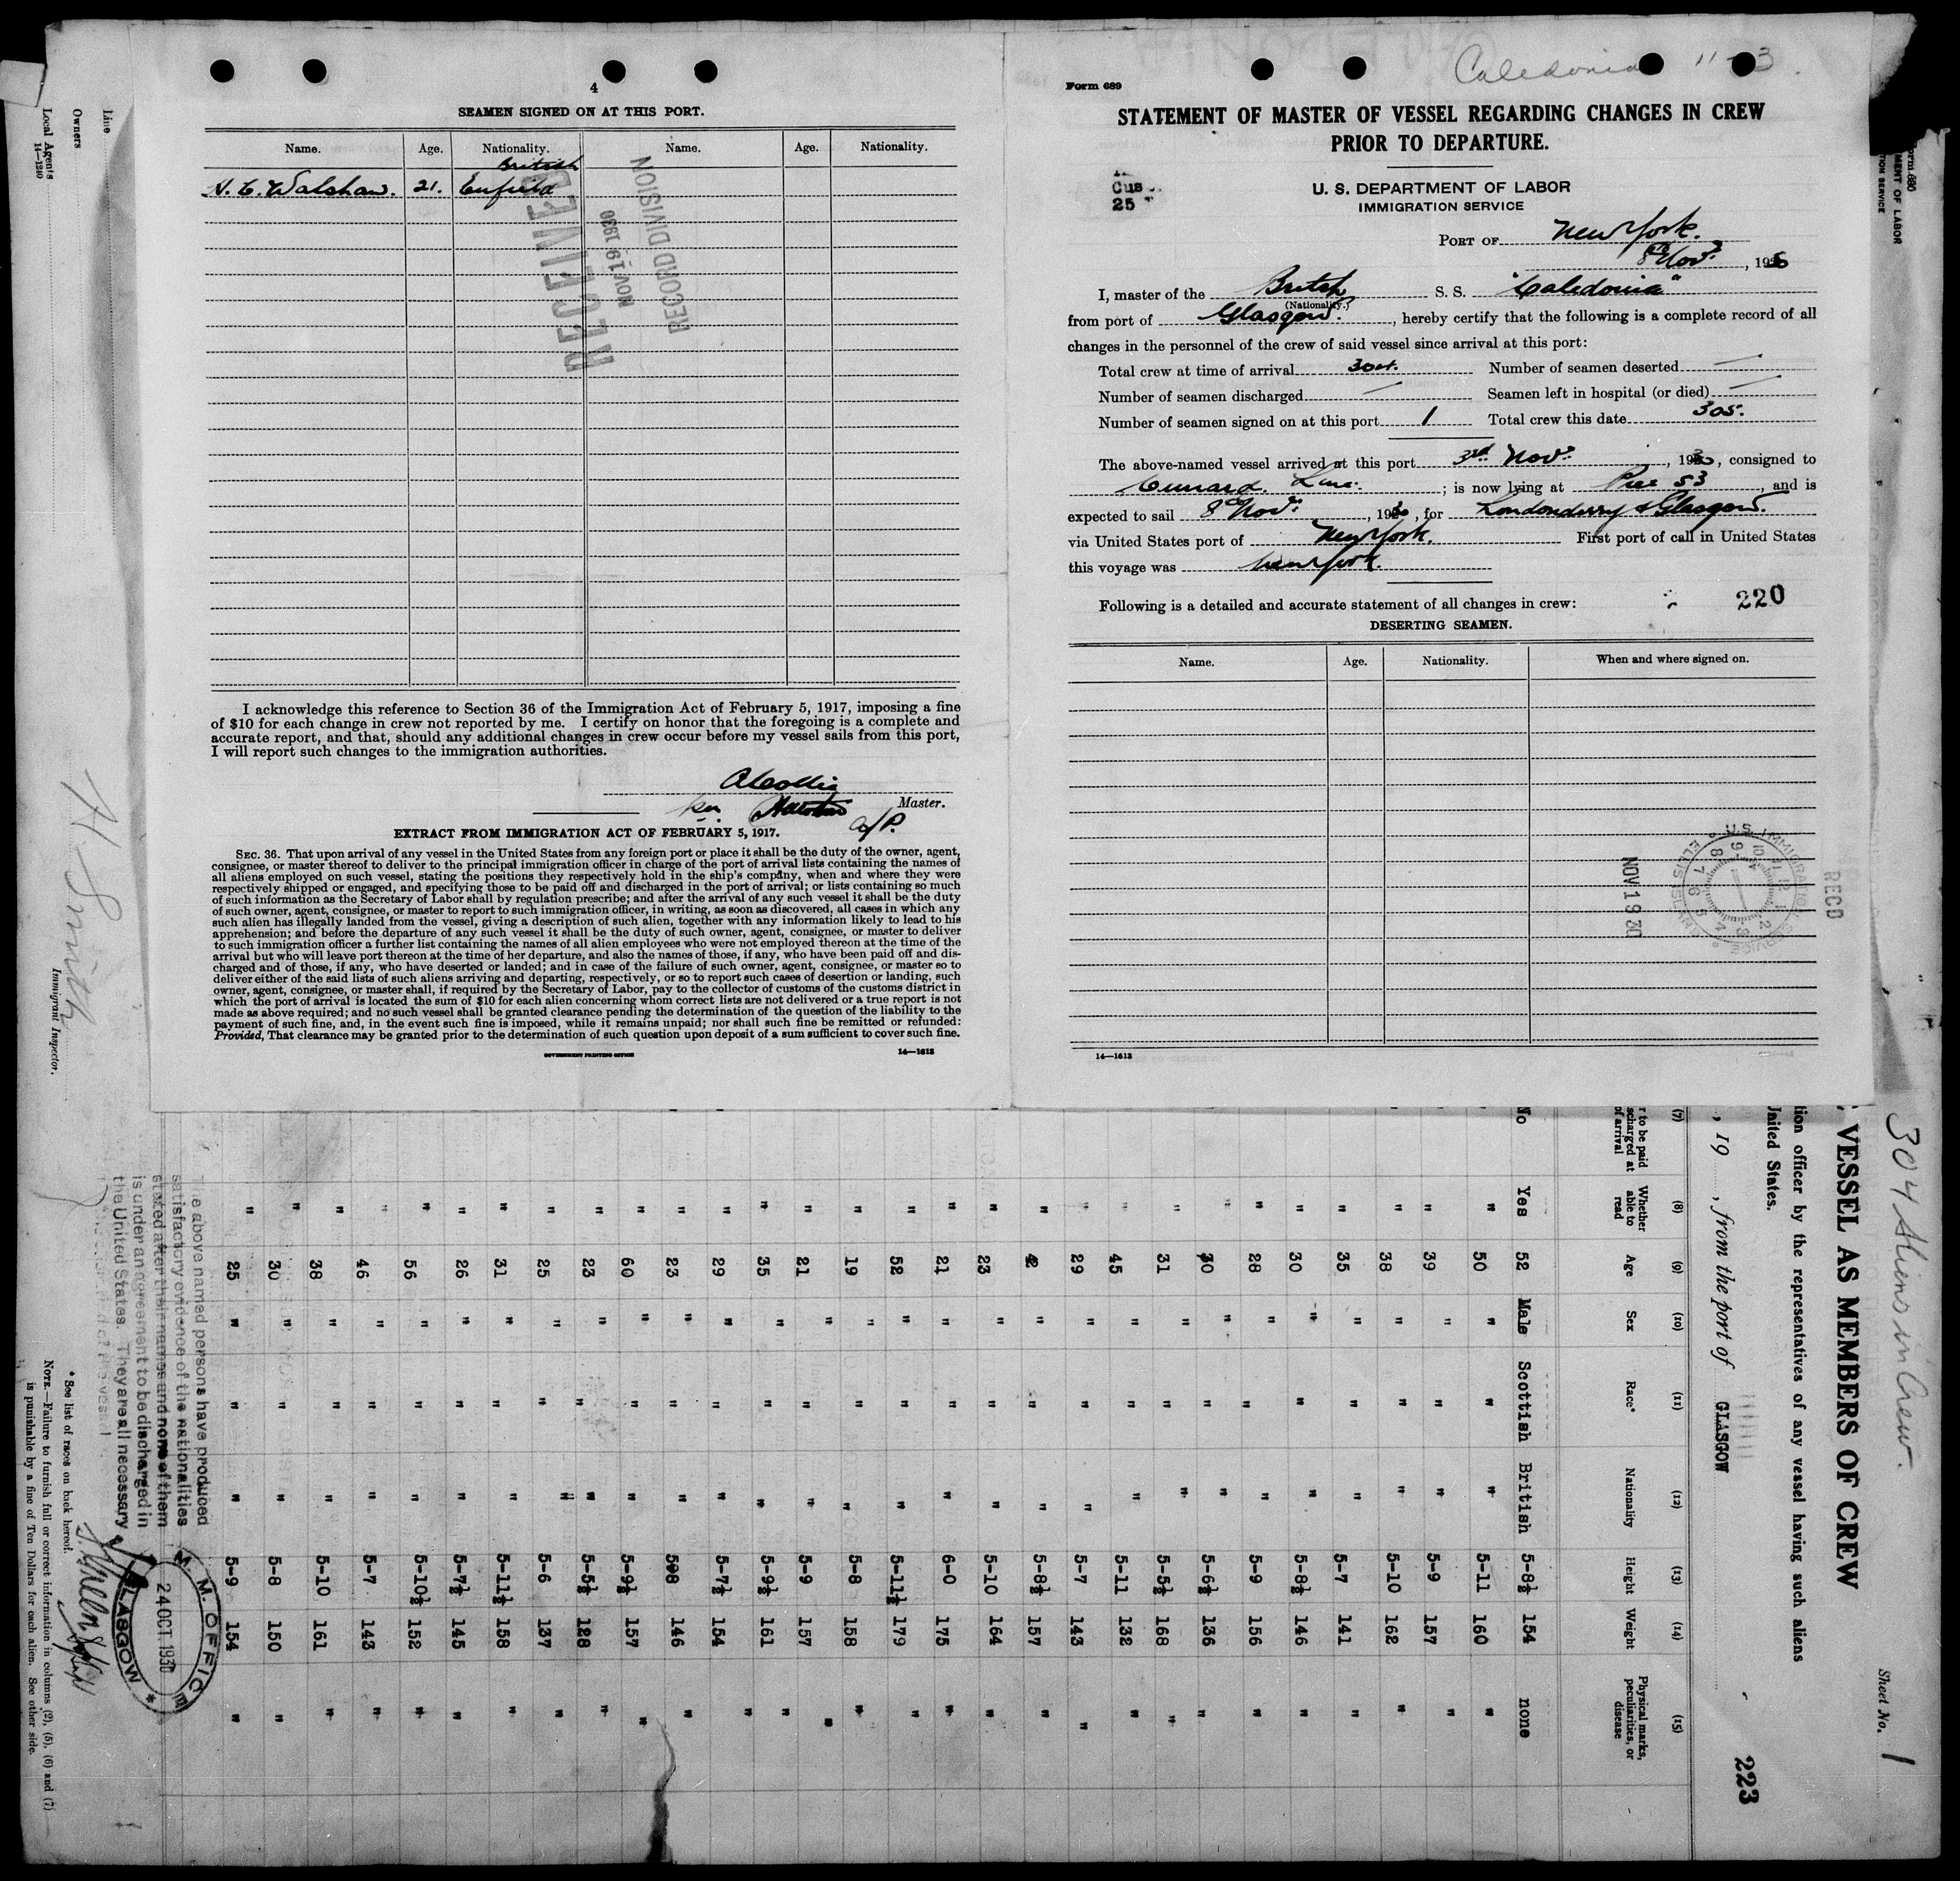 4
SEAMEN SIGNED ON AT THIS PORT.
Name. Age. Nationality. Name. Age. Nationality.
British
Walshaw. 21. Enfield
RECEIVED
NOV 19 1930
RECORD DIVISION
I acknowledge this reference to Section 36 of the Immigration Act of February 5, 1917, imposing a fine
of $10 for each change in crew not reported by me. I certify on honor that the foregoing is a complete and
accurate report, and that, should any additional changes in crew occur before my vessel sails from this port,
I will report such changes to the immigration authorities.
A Collie
per
Master.
EXTRACT FROM IMMIGRATION ACT OF FEBRUARY 5, 1917.
SEC. 36. That upon arrival of any vessel in the United States from any foreign port or place it shall be the duty of the owner, agent,
consignee, or master thereof to deliver to the principal immigration officer in charge of the port of arrival lists containing the names of
all aliens employed on such vessel, stating the positions they respectively hold in the ship's company, when and where they were
respectively shipped or engaged, and specifying those to be paid off and discharged in the port of arrival; or lists containing so much
of such information as the Secretary of Labor shall by regulation prescribe; and after the arrival of any such vessel it shall be the duty
of such owner, agent, consignee, or master to report to such immigration officer, in writing, as soon as discovered, all cases in which any
such alien has illegally landed from the vessel, giving a description of such alien, together with any information likely to lead to his
apprehension; and before the departure of any such vessel it shall be the duty of such owner, agent, consignee, or master to deliver
to such immigration officer a further list containing the names of all alien employees who were not employed thereon at the time of the
arrival but who will leave port thereon at the time of her departure, and also the names of those, if any, who have been paid off and dis-
charged and of those, if any, who have deserted or landed; and in case of the failure of such owner, agent, consignee, or master so to
deliver either of the said lists of such aliens arriving and departing, respectively, or so to report such cases of desertion or landing, such
owner, agent, consignee, or master shall, if required by the Secretary of Labor, pay to the collector of customs of the customs district in
which the port of arrival is located the sum of $10 for each alien concerning whom correct lists are not delivered or a true report is not
made as above required; and no such vessel shall be granted clearance pending the determination of the question of the liability to the
payment of such fine, and, in the event such fine is imposed, while it remains unpaid; nor shall such fine be remitted or refunded:
Provided, That clearance may be granted prior to the determination of such question upon deposit of a sum sufficient to cover such fine.
GOVERNMENT PRINTING OFFICE 14—1613
Caledonia 11-3.
Form 689
STATEMENT OF MASTER OF VESSEL REGARDING CHANGES IN CREW
PRIOR TO DEPARTURE.
Cus
25
U. S. DEPARTMENT OF LABOR
IMMIGRATION SERVICE
PORT OF New York.
8th Nov., 1930
I, master of the British S. S. "Caledonia"
(Nationality.)
from port of Glasgow., hereby certify that the following is a complete record of all
changes in the personnel of the crew of said vessel since arrival at this port:
Total crew at time of arrival 304. Number of seamen deserted —
Number of seamen discharged — Seamen left in hospital (or died) —
Number of seamen signed on at this port 1 Total crew this date 305.
The above-named vessel arrived at this port 3rd Nov., 1930, consigned to
Cunard Line.; is now lying at Pier 53, and is
expected to sail 8th Nov., 1930, for Londonderry & Glasgow.
via United States port of New York. First port of call in United States
this voyage was New York.
Following is a detailed and accurate statement of all changes in crew:
220
DESERTING SEAMEN.
Name. Age. Nationality. When and where signed on.
RECD
U.S. IMMIGRATION SERVICE
ELLIS ISLAND
NOV 19 30
14—1613
304 Aliens in Crew.
Sheet No. 1
VESSEL AS MEMBERS OF CREW
223
tion officer by the representatives of any vessel having such aliens
United States.
, 19 , from the port of GLASGOW
(7) (8) (9) (10) (11) (12) (13) (14) (15)
r to be paid scharged at of arrival Whether able to read Age Sex Race* Nationality Height Weight Physical marks, peculiarities, or disease
No Yes 52 Male Scottish British 5-8½ 154 none
" 50 " " " 5-11 160 "
" 39 " " " 5-9 157 "
" 38 " " " 5-10 162 "
" 35 " " " 5-7 141 "
" 30 " " " 5-8½ 146 "
" 28 " " " 5-9 156 "
" 30 " " " 5-6½ 136 "
" 31 " " " 5-5½ 168 "
" 45 " " " 5-11 132 "
" 29 " " " 5-7 143 "
" 42 " " " 5-8½ 157 "
" 23 " " " 5-10 164 "
" 21 " " " 6-0 175 "
" 52 " " " 5-11½ 179 "
" 19 " " " 5-8 158 "
" 21 " " " 5-9 157 "
" 35 " " " 5-9½ 161 "
" 29 " " " 5-7½ 154 "
" 23 " " " 5-8 146 "
" 60 " " " 5-9½ 157 "
" 23 " " " 5-5½ 128 "
" 25 " " " 5-6 137 "
" 31 " " " 5-11½ 158 "
" 26 " " " 5-7½ 145 "
" 56 " " " 5-10½ 152 "
" 46 " " " 5-7 143 "
" 38 " " " 5-10 161 "
" 30 " " " 5-8 150 "
" 25 " " " 5-9 154 "
The above named persons have produced
satisfactory evidence of the nationalities
stated after their names and none of them
is under an agreement to be discharged in
the United States. They are all necessary
M. M. OFFICE
24 OCT 1930
GLASGOW
* See list of races on back hereof.
NOTE.—Failure to furnish full or correct information in columns (2), (5), (6) and (7)
is punishable by a fine of Ten Dollars for each alien. See other side.
Line
Owners
Local Agents
14—1240
H. Smith
Immigrant Inspector.
orm 680
MENT OF LABOR
TION SERVICE